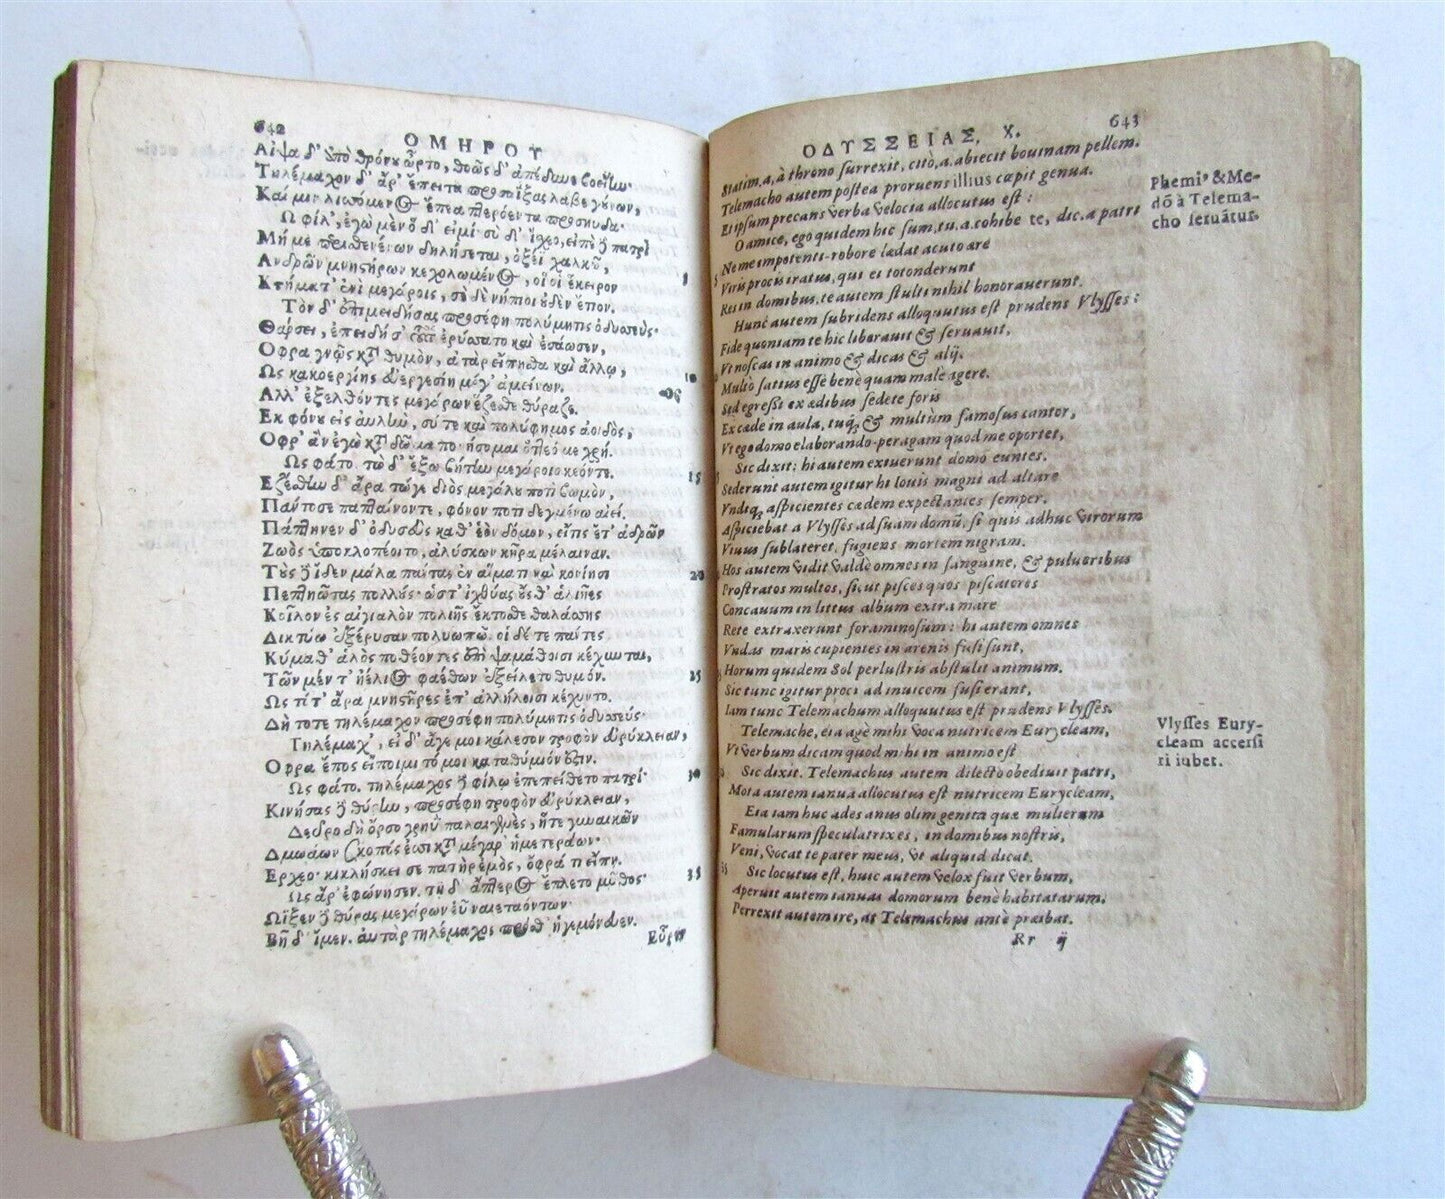 642
ΟΜΗΡΟΥ
Αἶψα δ' ὑπὸ θρόνου ὦρτο, θοῶς δ' ἀπέδυνε βοείην·
Τηλέμαχον δ' ἄρ' ἔπειτα προσαΐξας λάβε γούνων,
Καί μιν λισσόμενος ἔπεα πτερόεντα προσηύδα·
Ω φίλ', ἐγὼ μὲν ὅδ' εἰμί· σὺ δ' ἴσχεο, εἰπὲ δὲ πατρὶ
Μή με περισθενέων δηλήσεται, ὀξέϊ χαλκῷ,
Ανδρῶν μνηστήρων κεχολωμένος, οἵ οἱ ἔκειρον 5
Κτήματ' ἐνὶ μεγάροις, σὲ δὲ νήπιοι οὐδὲν ἔτιον.
Τὸν δ' ἐπιμειδήσας προσέφη πολύμητις ὀδυσσεύς·
Θάρσει, ἐπειδή σ' οὗτος ἐρύσσατο καὶ ἐσάωσεν,
Οφρα γνῷς κατὰ θυμὸν, ἀτὰρ εἴπῃσθα καὶ ἄλλῳ,
Ως κακοεργίης εὐεργεσίη μέγ' ἀμείνων. 10
Αλλ' ἐξελθόντες μεγάρων ἕζεσθε θύραζε.
Εκ φόνου εἰς αὐλὴν, σύ τε καὶ πολύφημος ἀοιδὸς,
Οφρ' ἂν ἐγὼ κατὰ δῶμα πονήσομαι ὅττεό με χρή.
Ως φάτο. τὼ δ' ἔξω βήτην μεγάροιο κιόντε.
Εζέσθην δ' ἄρα τώγε διὸς μεγάλου ποτὶ βωμὸν, 15
Πάντοσε παπταίνοντε, φόνον ποτιδεγμένω αἰεί.
Πάπτηνεν δ' ὀδυσεὺς καθ' ἑὸν δόμον, εἴτις ἔτ' ἀνδρῶν
Ζωὸς ὑποκλοπέοιτο, ἀλύσκων κῆρα μέλαιναν.
Τοὺς δὲ ἴδεν μάλα πάντας ἐν αἵματι καὶ κονίῃσι 20
Πεπτηῶτας πολλούς· ὥστ' ἰχθύας οὕς θ' ἁλιῆες
Κοῖλον ἐς αἰγιαλὸν πολιῆς ἔκτοσθε θαλάσσης
Δικτύῳ ἐξέρυσαν πολυωπῷ. οἱ δέ τε πάντες
Κύμαθ' ἁλὸς ποθέοντες ἐπὶ ψαμάθοισι κέχυνται,
Τῶν μέν τ' ἠέλιος φαέθων ἐξείλετο θυμόν. 25
Ως τότ' ἄρα μνηστῆρες ἐπ' ἀλλήλοισι κέχυντο.
Δὴ τότε τηλέμαχον προσέφη πολύμητις ὀδυσσεύς·
Τηλέμαχ', εἰ δ' ἄγε μοι κάλεσον τροφὸν εὐρύκλειαν,
Οφρα ἔπος εἴποιμι τό μοι καταθύμιόν ἐστιν.
Ως φάτο. τηλέμαχος δὲ φίλῳ ἐπεπείθετο πατρί· 30
Κινήσας δὲ θύρην, προσέφη τροφὸν εὐρύκλειαν,
Δεῦρο δὴ ὄρσο γρηῢ παλαιγενὲς, ἥτε γυναικῶν
Δμωάων σκοπός ἐσσι κατὰ μέγαρ' ἡμετεράων·
Ερχεο· κικλήσκει σε πατὴρ ἐμὸς, ὄφρα τι εἴπῃ.
Ως ἄρ' ἐφώνησεν. τῇ δ' ἄπτερος ἔπλετο μῦθος· 35
Ωϊξεν δὲ θύρας μεγάρων εὖ ναιεταόντων·
Βῆ δ' ἴμεν. αὐτὰρ τηλέμαχος πρόσθ' ἡγεμόνευεν.
Εὗρεν
ΟΔΥΣΣΕΙΑΣ, Χ. 643
Statim, a, à throno surrexit, citò, a. abiecit bouinam pellem.
Telemacho autem postea proruens illius cœpit genua.
Et ipsum precans verba velocia allocutus est:
O amice, ego quidem hic sum, tu. a. cohibe te, dic. a patri
Ne me impotenti-robore lædat acuto ære
Viris procis iratus, qui ei totonderunt
Res in domibus, te autem stulti nihil honorauerunt.
Hunc autem subridens alloquutus est prudens Vlysses:
Fide quoniam te hic liberauit & seruauit,
Vt noscas in animo & dicas & alij.
Multò satius esse benè quam male agere.
Sed egressi ex ædibus sedete foris
Ex cæde in aula, tuq; & multùm famosus cantor,
Vt ego domo elaborando-peragam quod me oportet,
Sic dixit: hi autem exiuerunt domo euntes.
Sederunt autem igitur hi Iouis magni ad altare
Vndiq; aspicientes cædem expectantes semper.
Aspiciebat a Vlysses ad suam domũ, si quis adhuc virorum
Viuus sublateret, fugiens mortem nigram.
Hos autem vidit valdè omnes in sanguine, & pulueribus
Prostratos multos, sicut pisces quos piscatores
Concauum in littus album extra mare
Rete extraxerunt foraminosum: hi autem omnes
Vndas maris cupientes in arenis fusi sunt,
Horum quidem Sol perlustris abstulit animum.
Sic tunc igitur proci ad inuicem fusi erant,
Iam tunc Telemachum alloquutus est prudens Vlysses.
Telemache, eia agè mihi voca nutricem Eurycleam,
Vt verbum dicam quod mihi in animo est.
Sic dixit. Telemachus autem dilecto obediuit patri,
Mota autem ianuâ allocutus est nutricem Eurycleam,
Eia iam huc ades anus olim genita quæ mulierum
Famularum speculatrix es, in domibus nostris,
Veni, vocat te pater meus, vt aliquid dicat.
Sic locutus est, huic autem velox fuit verbum,
Aperuit autem ianuas domorum benè habitatarum.
Perrexit autem ire, at Telemachus antè præibat.
Rr ij
Phemi⁹ & Me-
dõ à Telema-
cho seruãtur.
Vlysses Eury-
cleam accersi
ri iubet.